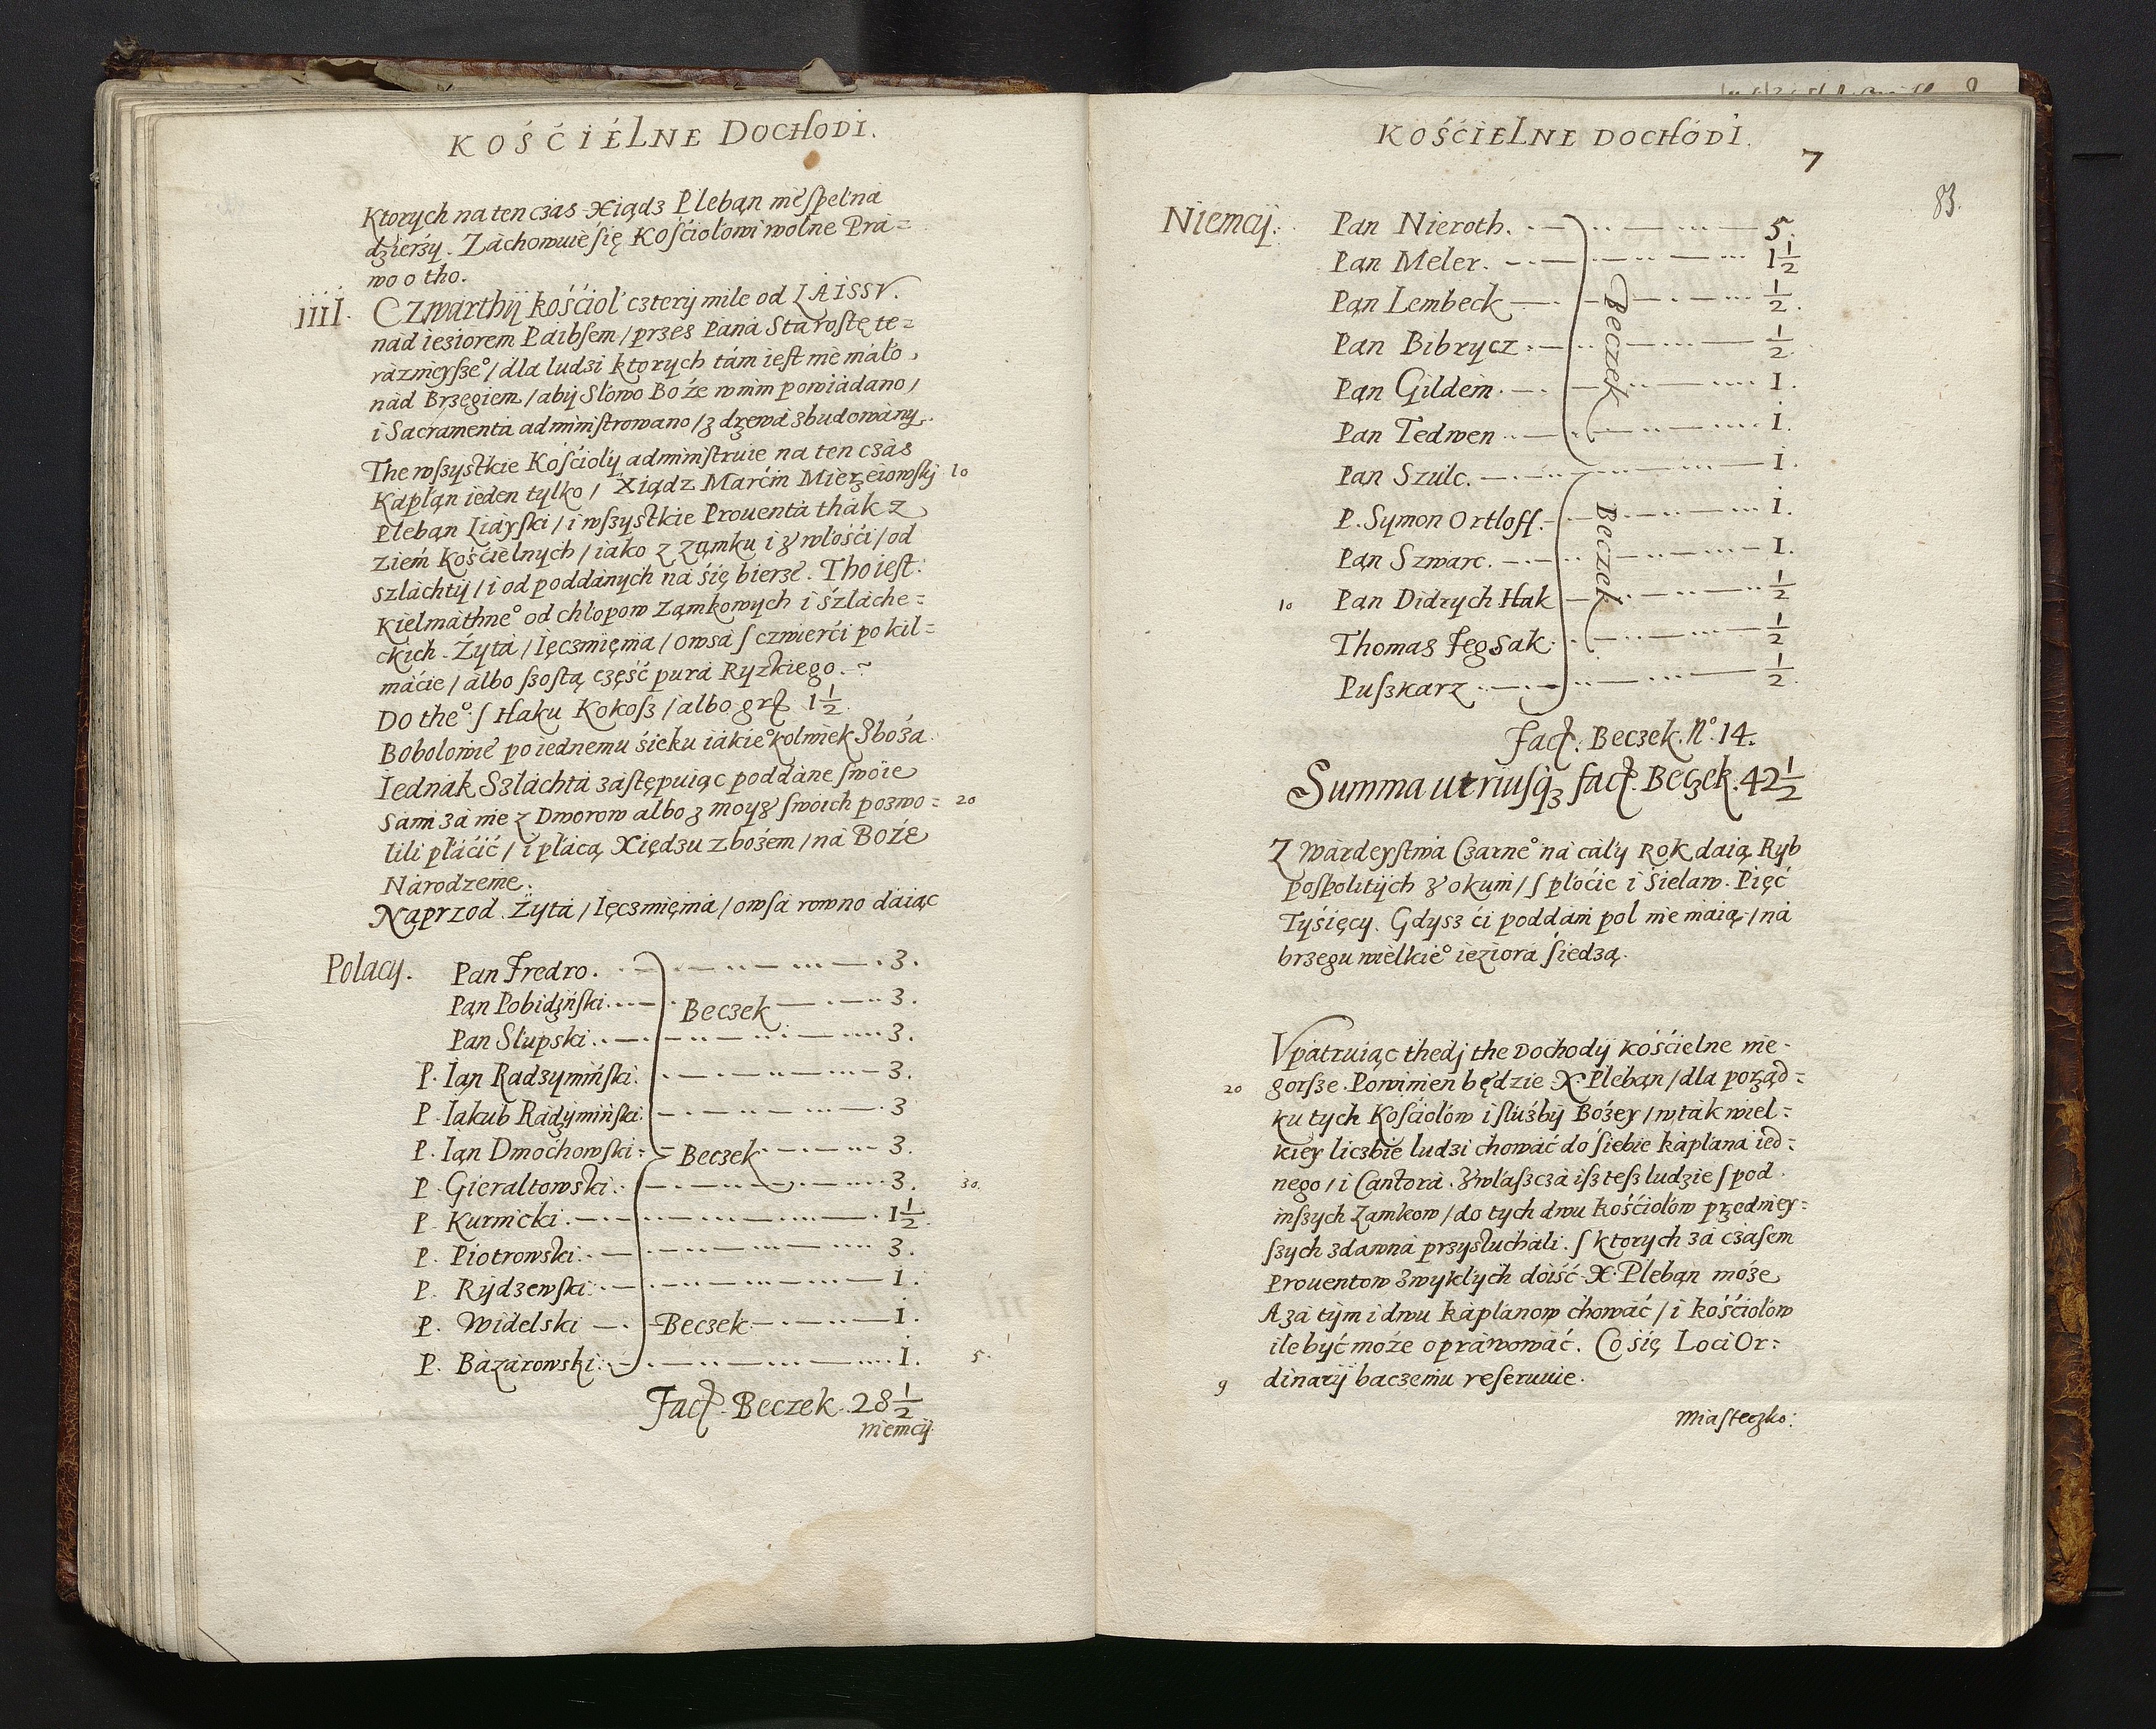 KOŚĆIÉLNE DOCHODI.
Ktorych na ten czas Xiądz Pleban nie spełna
dzierży. Záchowuie się Kościołowi wolne Prá=
wo o tho.
iiiI. Czwarthÿ kośćioł czterÿ mile od LAISSV.
nád ieziorem Páibsem / przes Páná Stárostę te=
ráznieyszeº / dla ludzi ktorych tám iest nie máło,
nád Brzegiem / abÿ Słowo Boże w nim powiádano /
i Sacramentá administrowano / z drzewá zbudowány.
The wszystkie Kośćiołÿ administruie na ten czás
Kapłąn ieden tylko / Xiądz Marćin Mierzeiowskÿ 10
Pleban Liáyski / i wszystkie Prouentá thák z
ziem kośćielnych / iáko z zamku i z włośći / od
szláchtÿ / i od poddánych ná się bierze. Tho iest:
Kielmáthneº od chłopow Zamkowych i śzláche=
ckich. Żytá / Ięczmięniá / owsá s czwierći po kil=
máćie / álbo szostą część purá Ryzkiego. ~
Do theº. s Haku Kokosz / álbo grß 1 1/2.
Bobolowie po iednemu śieku iákieºkolwiek Zboża.
Iednák Szláchtá zástępuiąc poddáne swoie
sámi zá nie z Dworow albo z moyz swoich pozwo= 20
lili płáćić / i płácą Xiędzu zbożem / ná BOŻE
Národzenie.
Naprzod. Żytá / Ięczmięniá / owsá rowno dáiąc
Polacy. Pan Fredro. 3.
Pan Pobidzński. Beczek 3.
Pan Słupski. 3.
P. Ian Radzymiński. 3.
P. Iakub Radzymiński. 3
P. Ian Dmochowski. Beczek 3.
P. Gierałtowski. 3. 30.
P. Kurnicki. 1 1/2.
P. Piotrowski. 3.
P. Rydzewski. 1.
P. Widelski Beczek 1.
P. Bázárowski. 1. 5.
Facit. Beczek. 28 1/2
Niemcÿ
KOŚĆIELNE DOCHÓDI.
7
83.
Niemcÿ. Pan Nieroth. 5.
Pąn Meler. 1 1/2
Pąn Lembeck 1/2.
Pan Bibrycz 1/2.
Pąn Gildem. 1.
Pan Tedwen 1.
Beczek
Pan Szulc. 1.
P. Symon Ortloff. 1.
Pan Szwarc. 1.
10 Pan Didrych Hak 1/2
Thomas Jegsak. 1/2
Puszkarz 1/2.
Beczek
Facit. Beczek. Nº. 14.
Summa utriusq3 facit. Beczek. 42 1/2
Z Wárdeystwá Czarneº ná cáły Rok dáią Ryb
pospolitÿch z okuni / s płoćic i śielaw. Pięć
Tyśięcy. Gdysz ći poddáni pol nie máią / ná
brzegu wielkieº ieziorá śiedzą.
Vpátruiąc thedj the Dochodÿ kośćielne nie
20 gorsze. Powinien będzie X. Pleban / dla porząd=
ku tych Kośćiołow i służbÿ Bożey / w ták wiel=
kiey liczbie ludzi chować do śiebie kápłana ied=
nego / i Cantorá. Zwłaszczá isz tesz ludzie s pod
inszych Zamkow / do tych dwu kośćiołow przedniey=
szych zdawná przysłucháli. s ktorych zá czásem
Prouentow zwykłych doiść X. Pleban może.
A zá tym i dwu kápłanow chowáć / i kośćiołow
ile być może oprawowáć. Co się Loci Or=
9 dinarÿ baczeniu reseruuie.
Miasteczko: